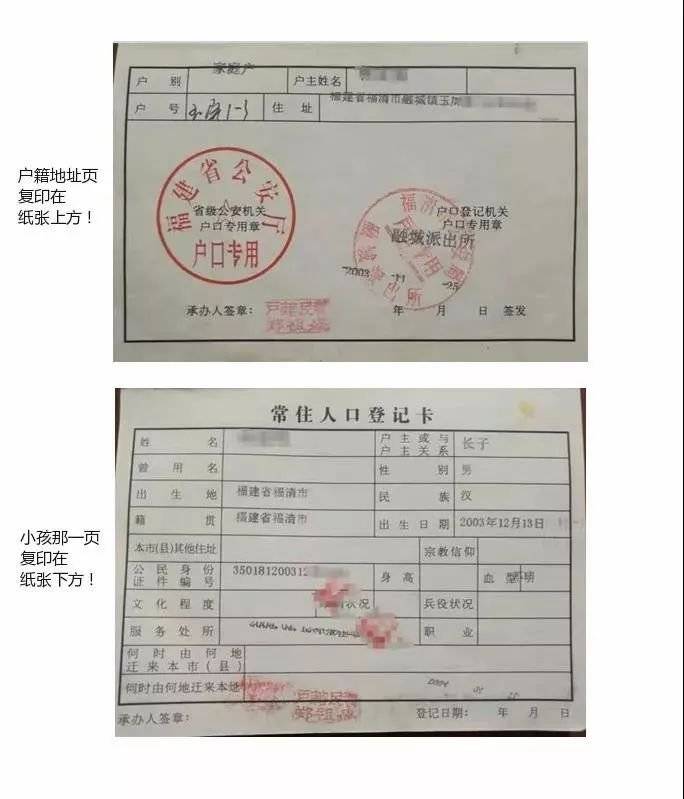 户 别 家庭户 户主姓名
户 号 住 址 福建省福清市融城镇玉
户籍地址页
复印在
纸张上方！
福建省公安厅
省级公安机关
户口专用章
户口专用
户口登记机关
户口专用章
融城派出所
2003 11 25
承办人签章： 年 月 日 签发
常住人口登记卡
姓 名 户主或与户主关系 长子
曾用名 性 别 男
出生地 福建省福清市 民 族 汉
籍 贯 福建省福清市 出生日期 2003年12月13日
本市(县)其他住址 宗教信仰
公民身份证件编号 350181200312 身高 血型
文化程度 状况 兵役状况
服务处所 职 业
何时由何地迁来本市(县)
何时由何地迁来本址
承办人签章： 登记日期： 年 月 日
小孩那一页
复印在
纸张下方！